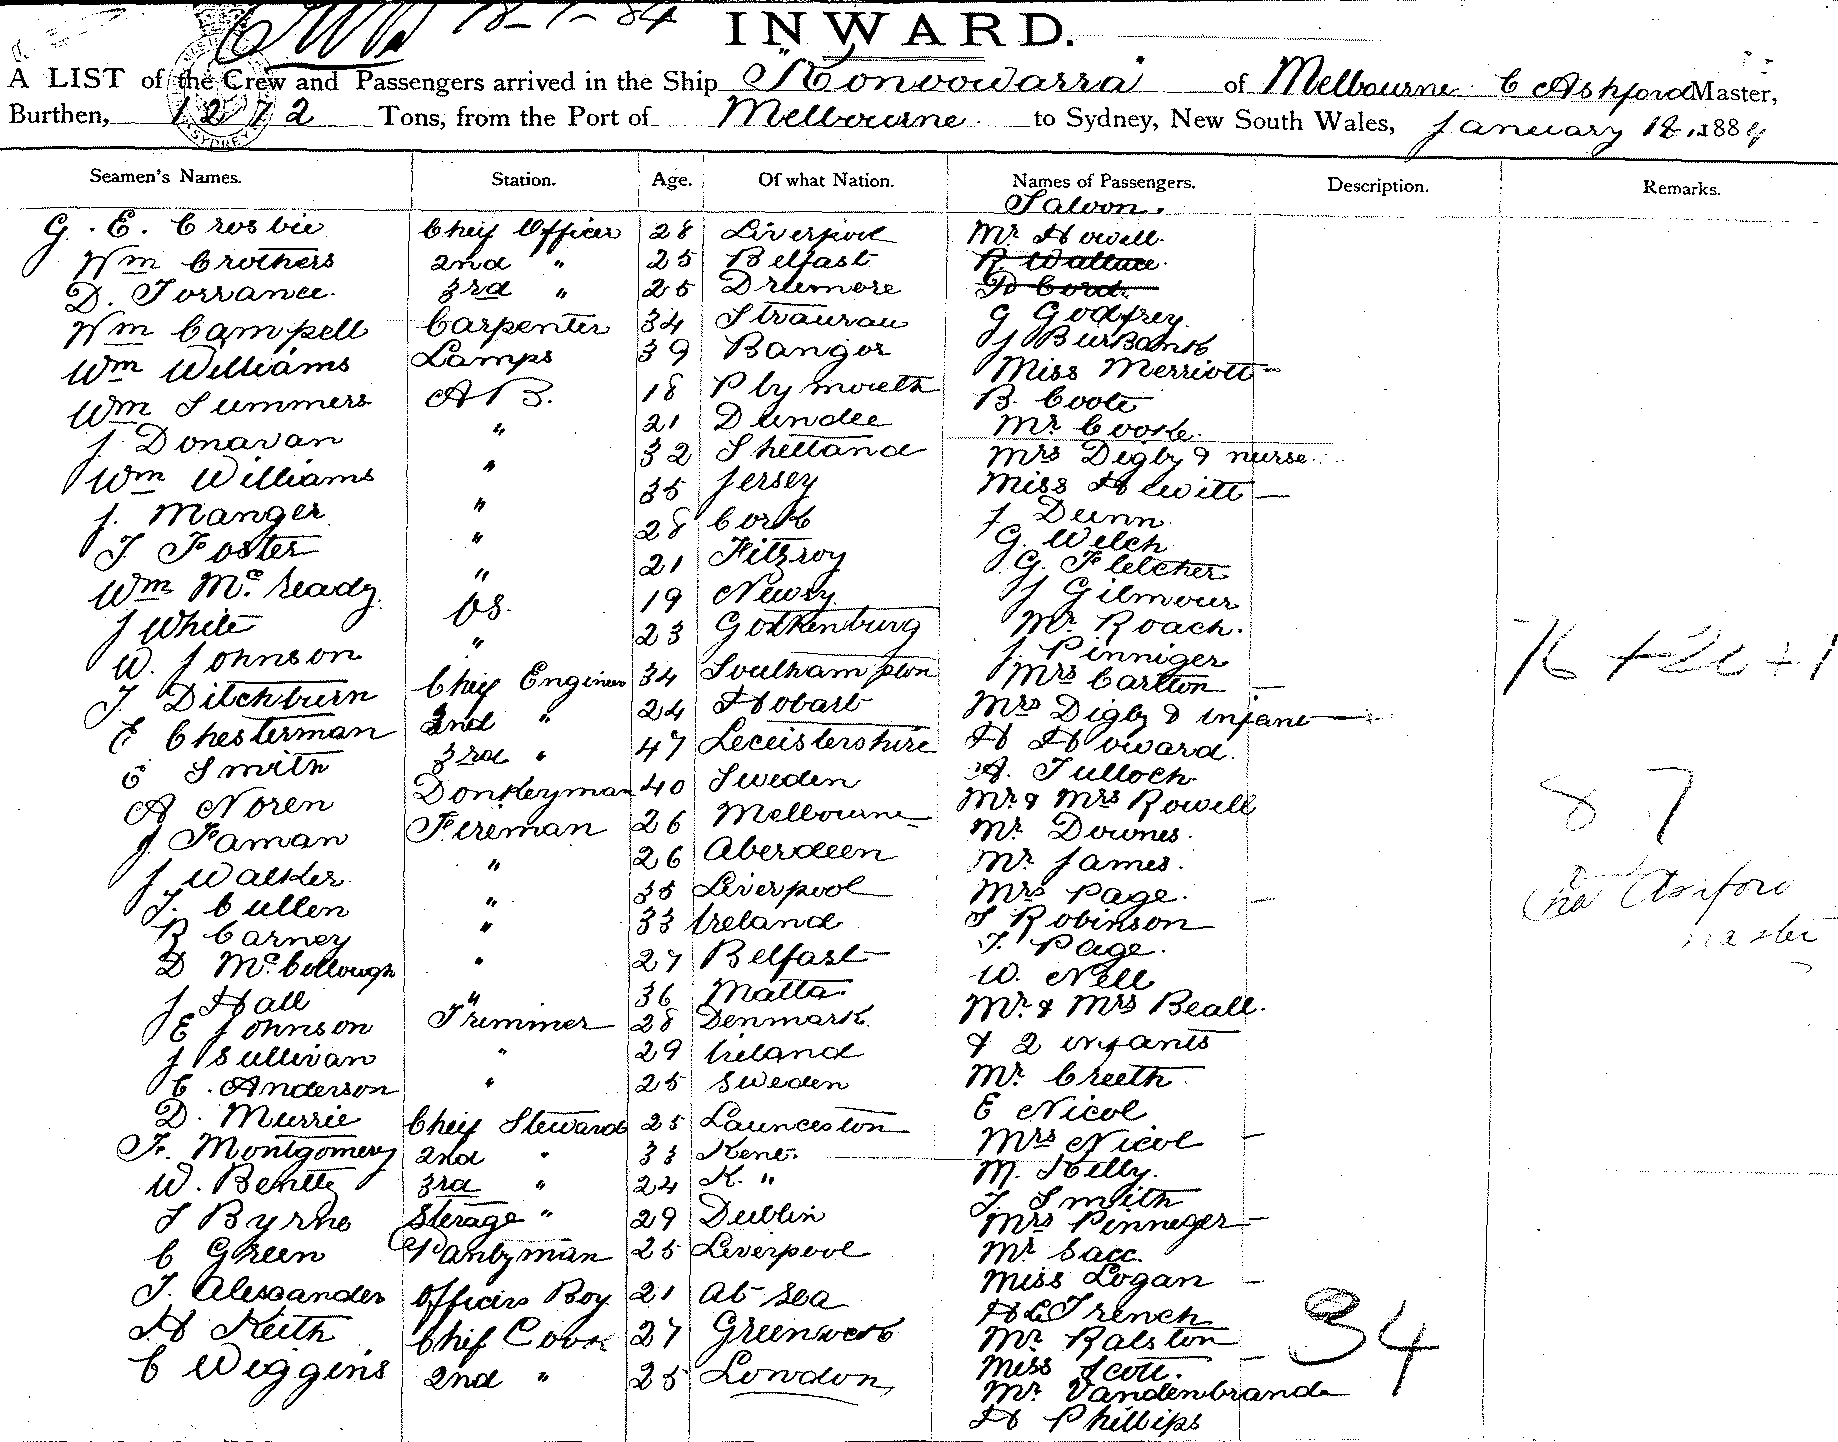 18-1-84
INWARD.
A LIST of the Crew and Passengers arrived in the Ship "Konoowarra" of Melbourne C Ashford Master,
Burthen, 1272 Tons, from the Port of Melbourne to Sydney, New South Wales, January 18 1884
Seamen's Names. Station. Age. Of what Nation. Names of Passengers. Description. Remarks.
Saloon.
G. E. Crosbie Chief Officer 28 Liverpool Mr Howell
Wm Crothers 2nd " 25 Belfast R. Wallace
D. Torrance 3rd " 25 Drumore
Wm Campell Carpenter 34 Straurau G Godfrey
Wm Williams Lamps 39 Bangor J Burbank
Wm Summers AB. 18 Plymouth Miss Merriott
J Donavan " 21 Dundee B. Coote
Wm Williams " 32 Shetland Mr Cooke
J. Manger " 35 Jersey Mrs Digby & nurse
T Foster " 28 Cork Miss Hewitt
Wm Mc.Cready " 21 Fitzroy J Dunn
J White OS. 19 Newry G. Welch
W. Johnson " 23 Gothenburg G. Fletcher
T Ditchburn Chief Engineer 34 Southampton J Gilmour
E Chesterman 2nd " 24 Hobart Mr Roach.
C Smith 3rd " 47 Leceistershire J. Pinniger
A Noren Donkeyman 40 Sweden Mrs Carlton
J. Faman Fireman 26 Melbourne Mrs Digby & infant
J Walker " 26 Aberdeen H Howard.
T. Cullen " 35 Liverpool A. Tulloch
R Carney " 33 Ireland Mr & Mrs Rowell
D McCollough " 27 Belfast Mr Downes.
J Hall " 36 Malta. Mr James.
E Johnson Trimmer 28 Denmark Mrs Page.
J Sullivan " 29 Ireland S Robinson
C. Anderson " 25 Sweden T. Page.
D. Murrie Chief Steward 25 Launceston W. Nell
F. Montgomery 2nd " 33 Kent. Mr & Mrs Beall.
W. Bentty 3rd " 24 K. " & 2 infants
T Byrne Sterage " 29 Dublin Mr Creeth
C Green Pantryman 25 Liverpool E Nicol
T. Alexander Officers Boy 21 At Sea Mrs Nicol
H Keith Chief Cook 27 Greenwich M. Kelly.
C Wiggins 2nd " 25 London T. Smith
Mrs Pinneger
Mr
Miss Logan
H L Trench
Mr Ralston
Miss Scott.
Mr Vandenbrande
H Phillips
34
87
Cha Ashford
master